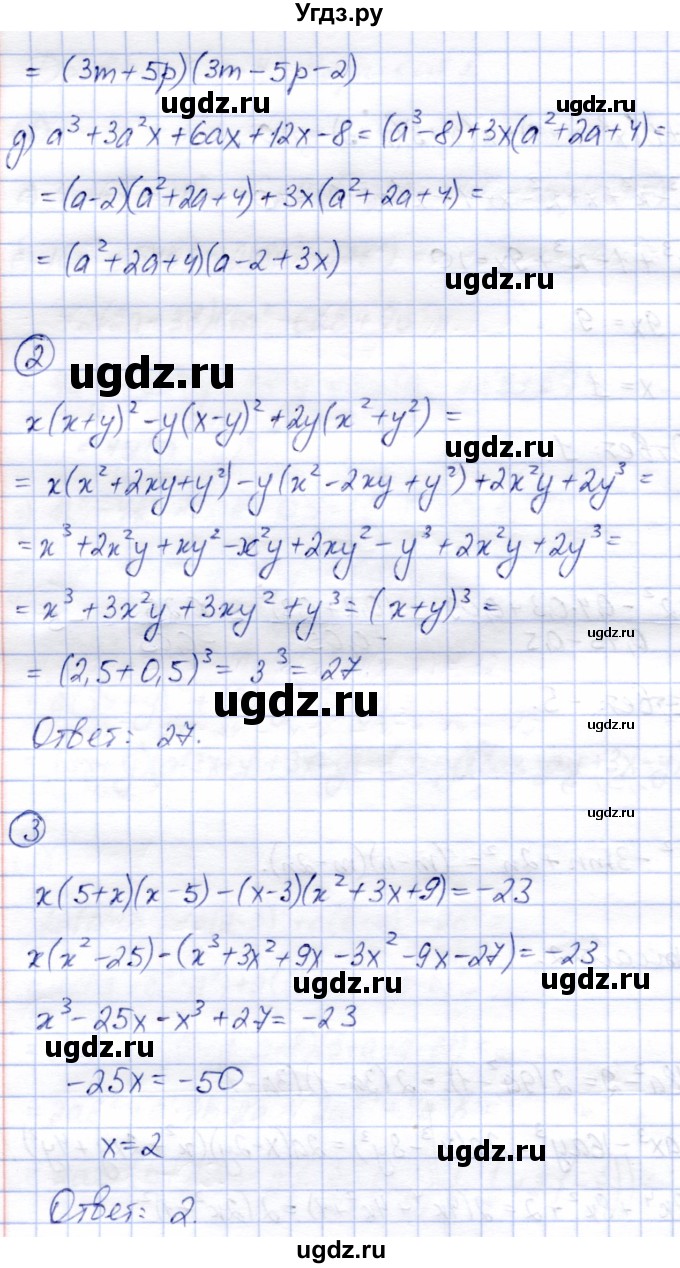 Угдз.ру
= (3m+5p)(3m-5p-2)
ugdz.ru
д) a³+3a²x+6ax+12x-8=(a³-8)+3x(a²+2a+4)=
ugdz.ru
=(a-2)(a²+2a+4)+3x(a²+2a+4)=
= (a²+2a+4)(a-2+3x)
ugdz.ru
2
ugdz.ru
x(x+y)²-y(x-y)²+2y(x²+y²)=
ugdz.ru
= x(x²+2xy+y²)-y(x²-2xy+y²)+2x²y+2y³=
=x³+2x²y+xy²-x²y+2xy²-y³+2x²y+2y³=
= x³+3x²y+3xy²+y³=(x+y)³=
ugdz.ru
= (2,5+0,5)³= 3³= 27
ugdz.ru
Ответ: 27.
ugdz.ru
3
ugdz.ru
x(5+x)(x-5)-(x-3)(x²+3x+9)=-23
x(x²-25)-(x³+3x²+9x-3x²-9x-27)=-23
ugdz.ru
ugdz.ru
x³-25x-x³+27=-23
ugdz.ru
-25x=-50
x=2
ugdz.ru
Ответ: 2.
ugdz.ru